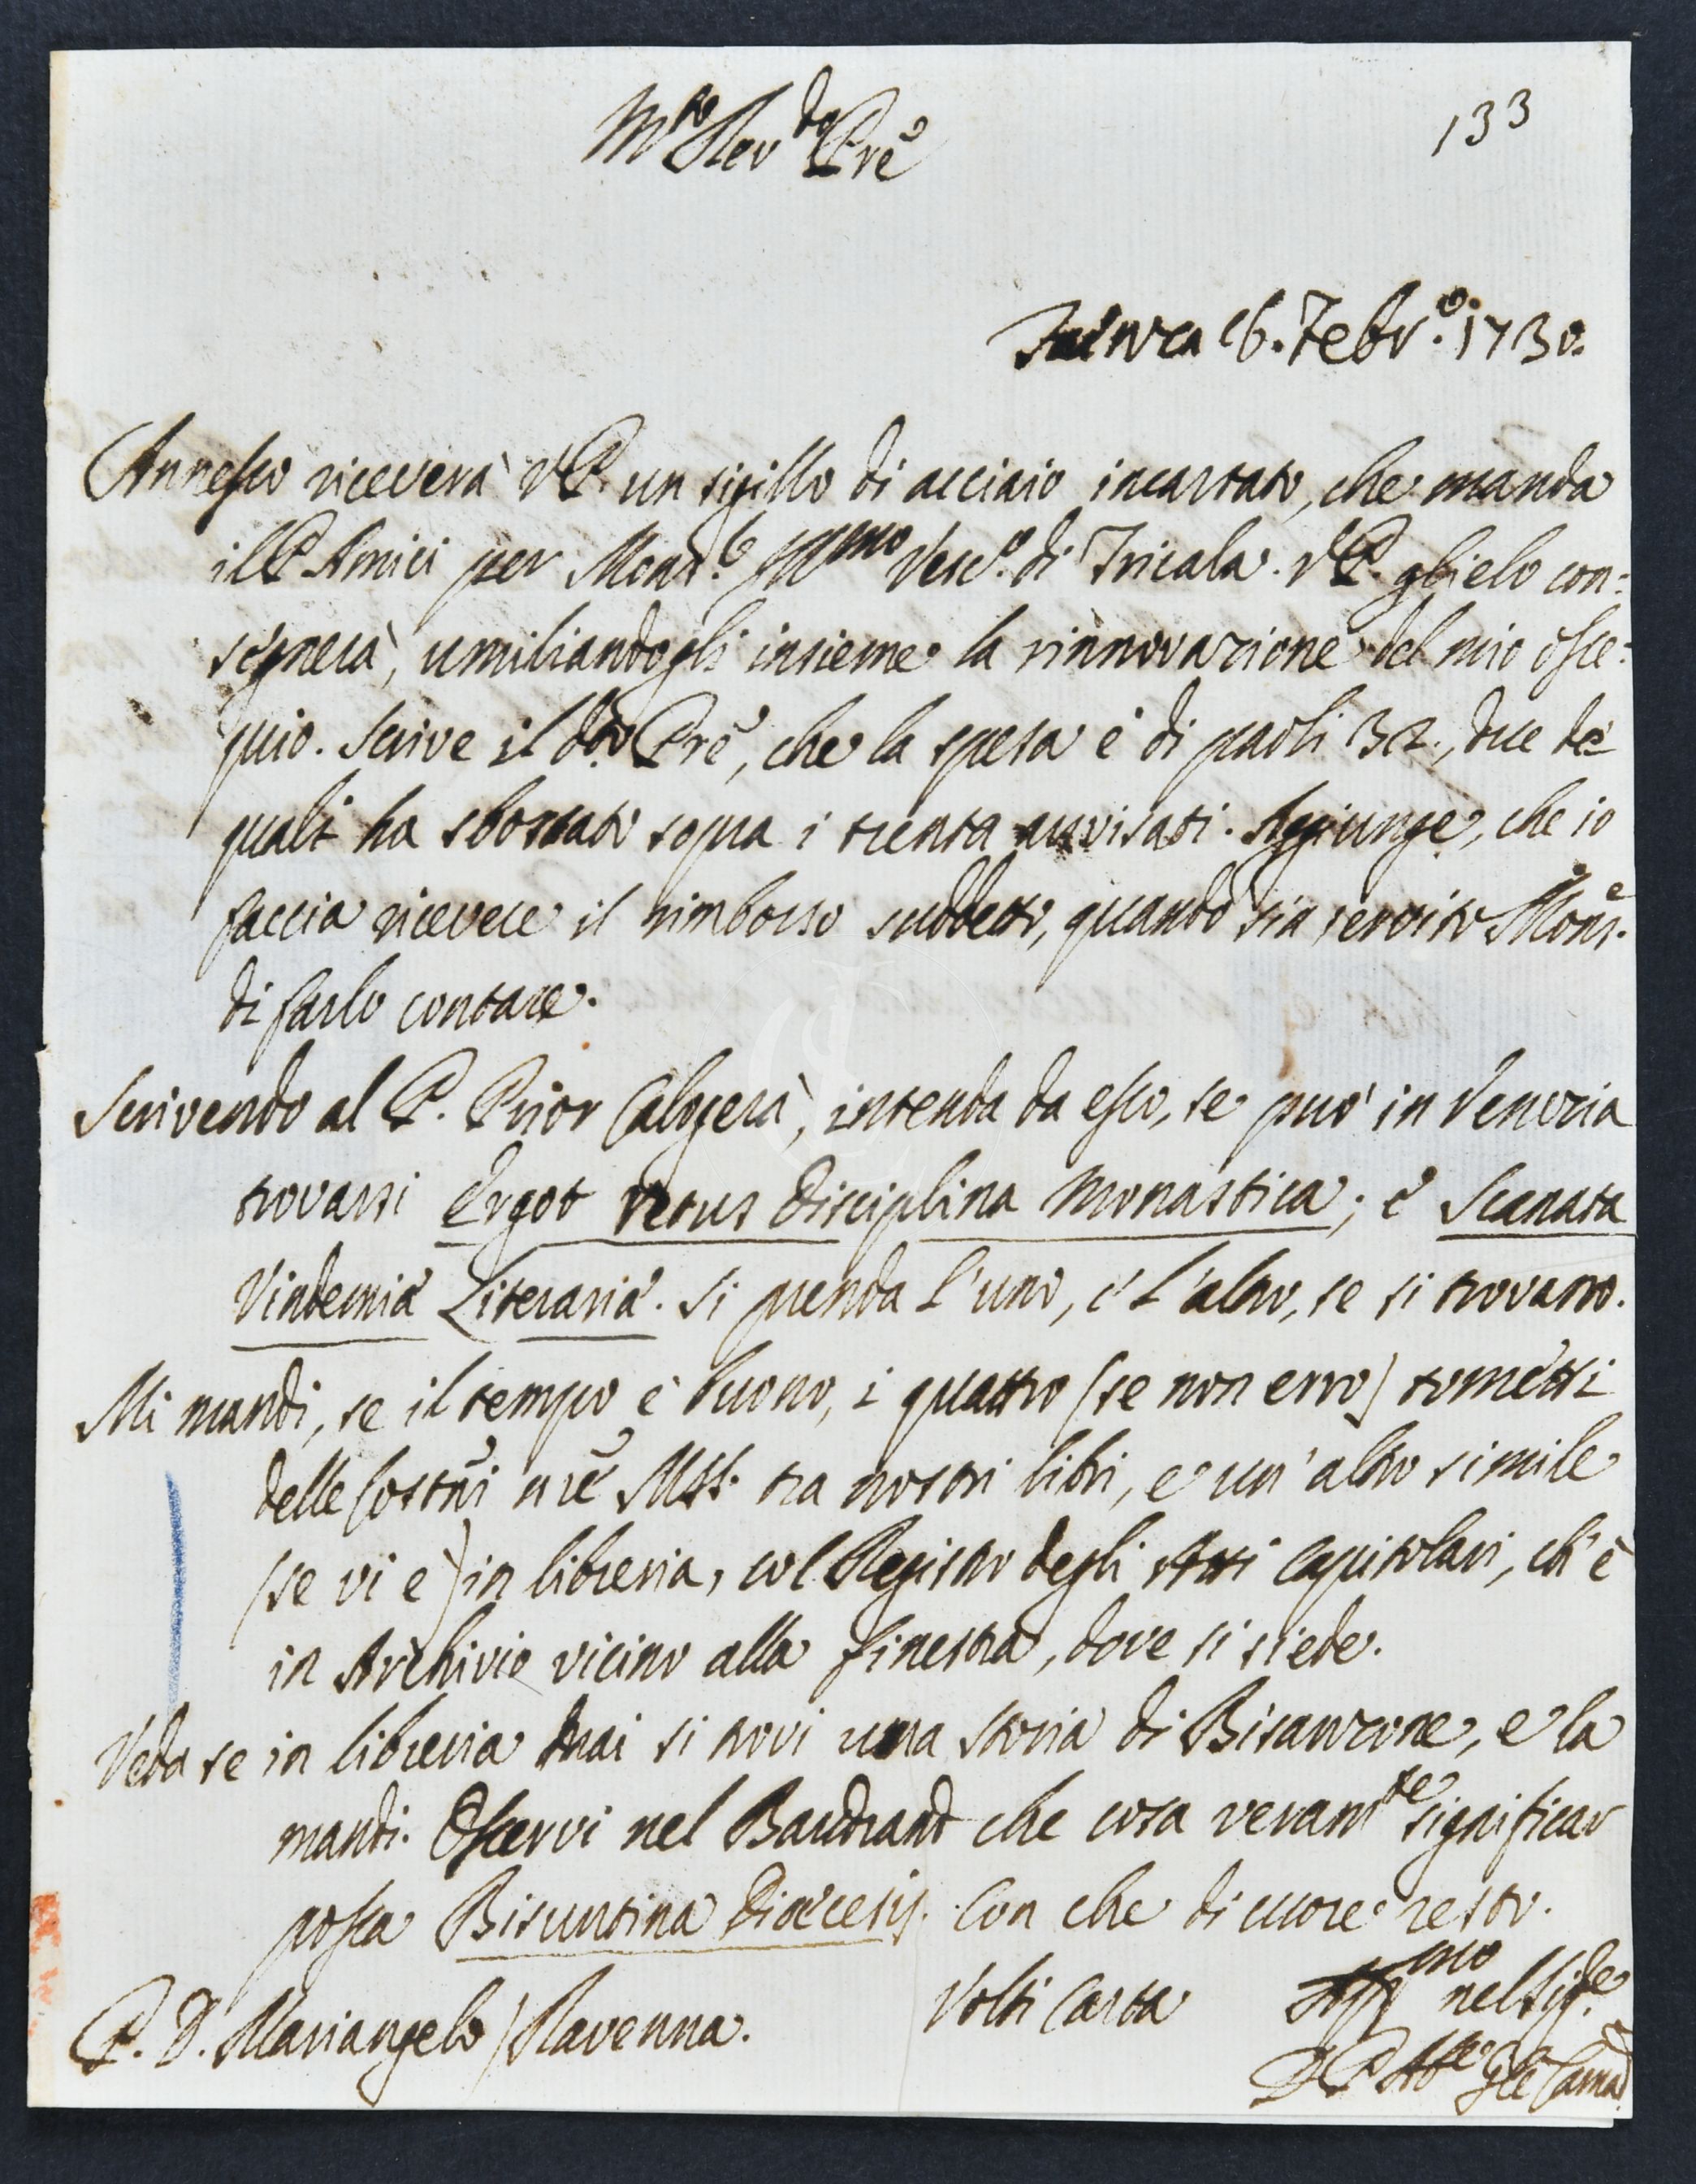 M.to Rev.do Pre
133
Faenza 16. Febr.o 1730.
Annesso riceverà V.P. un sigillo di acciaio incartato, che manda
il P. Amici per Mons.r Ill.mo Vesc.o di Tricala. V.P. glielo con:
segnerà, umiliandogli insieme la rinnovazione del mio osse:
quio. Scrive il do Pre, che la spesa è di paoli 32., due de
quali ha sborsato sopra i trenta avvisati. Aggiunge, che io
faccia ricevere il rimborso suddetto, quando sia servito Mons.e
di farlo contare.
Scrivendo al P. Prior Calogerà, intenda da esso, se può in Venezia
trovarsi Ergot vetus disciplina monastica; e Scanata
Vindemia Literaria. Si prenda l'uno, e l'altro, se si trovano.
Mi mandi, se il tempo è buono, i quattro (se non erro) tometti
delle Costni nre Mss. tra nostri libri, e un' altro simile
(se vi è) in libreria, col Registro degli Atti Capitolari, ch'è
in Archivio vicino alla finestra, dove si siede.
Veda se in libreria mai si trovi una storia di Bisanzone, e la
mandi. Osservi nel Baudrand che cosa veram.te significar
possa Bisuntina Dioecesis. Con che di cuore resto.
Volti Carta
Aff.mo nel Sig.re
P. D. Mariangelo / Ravenna.
D P Ab.e Gle Camal.